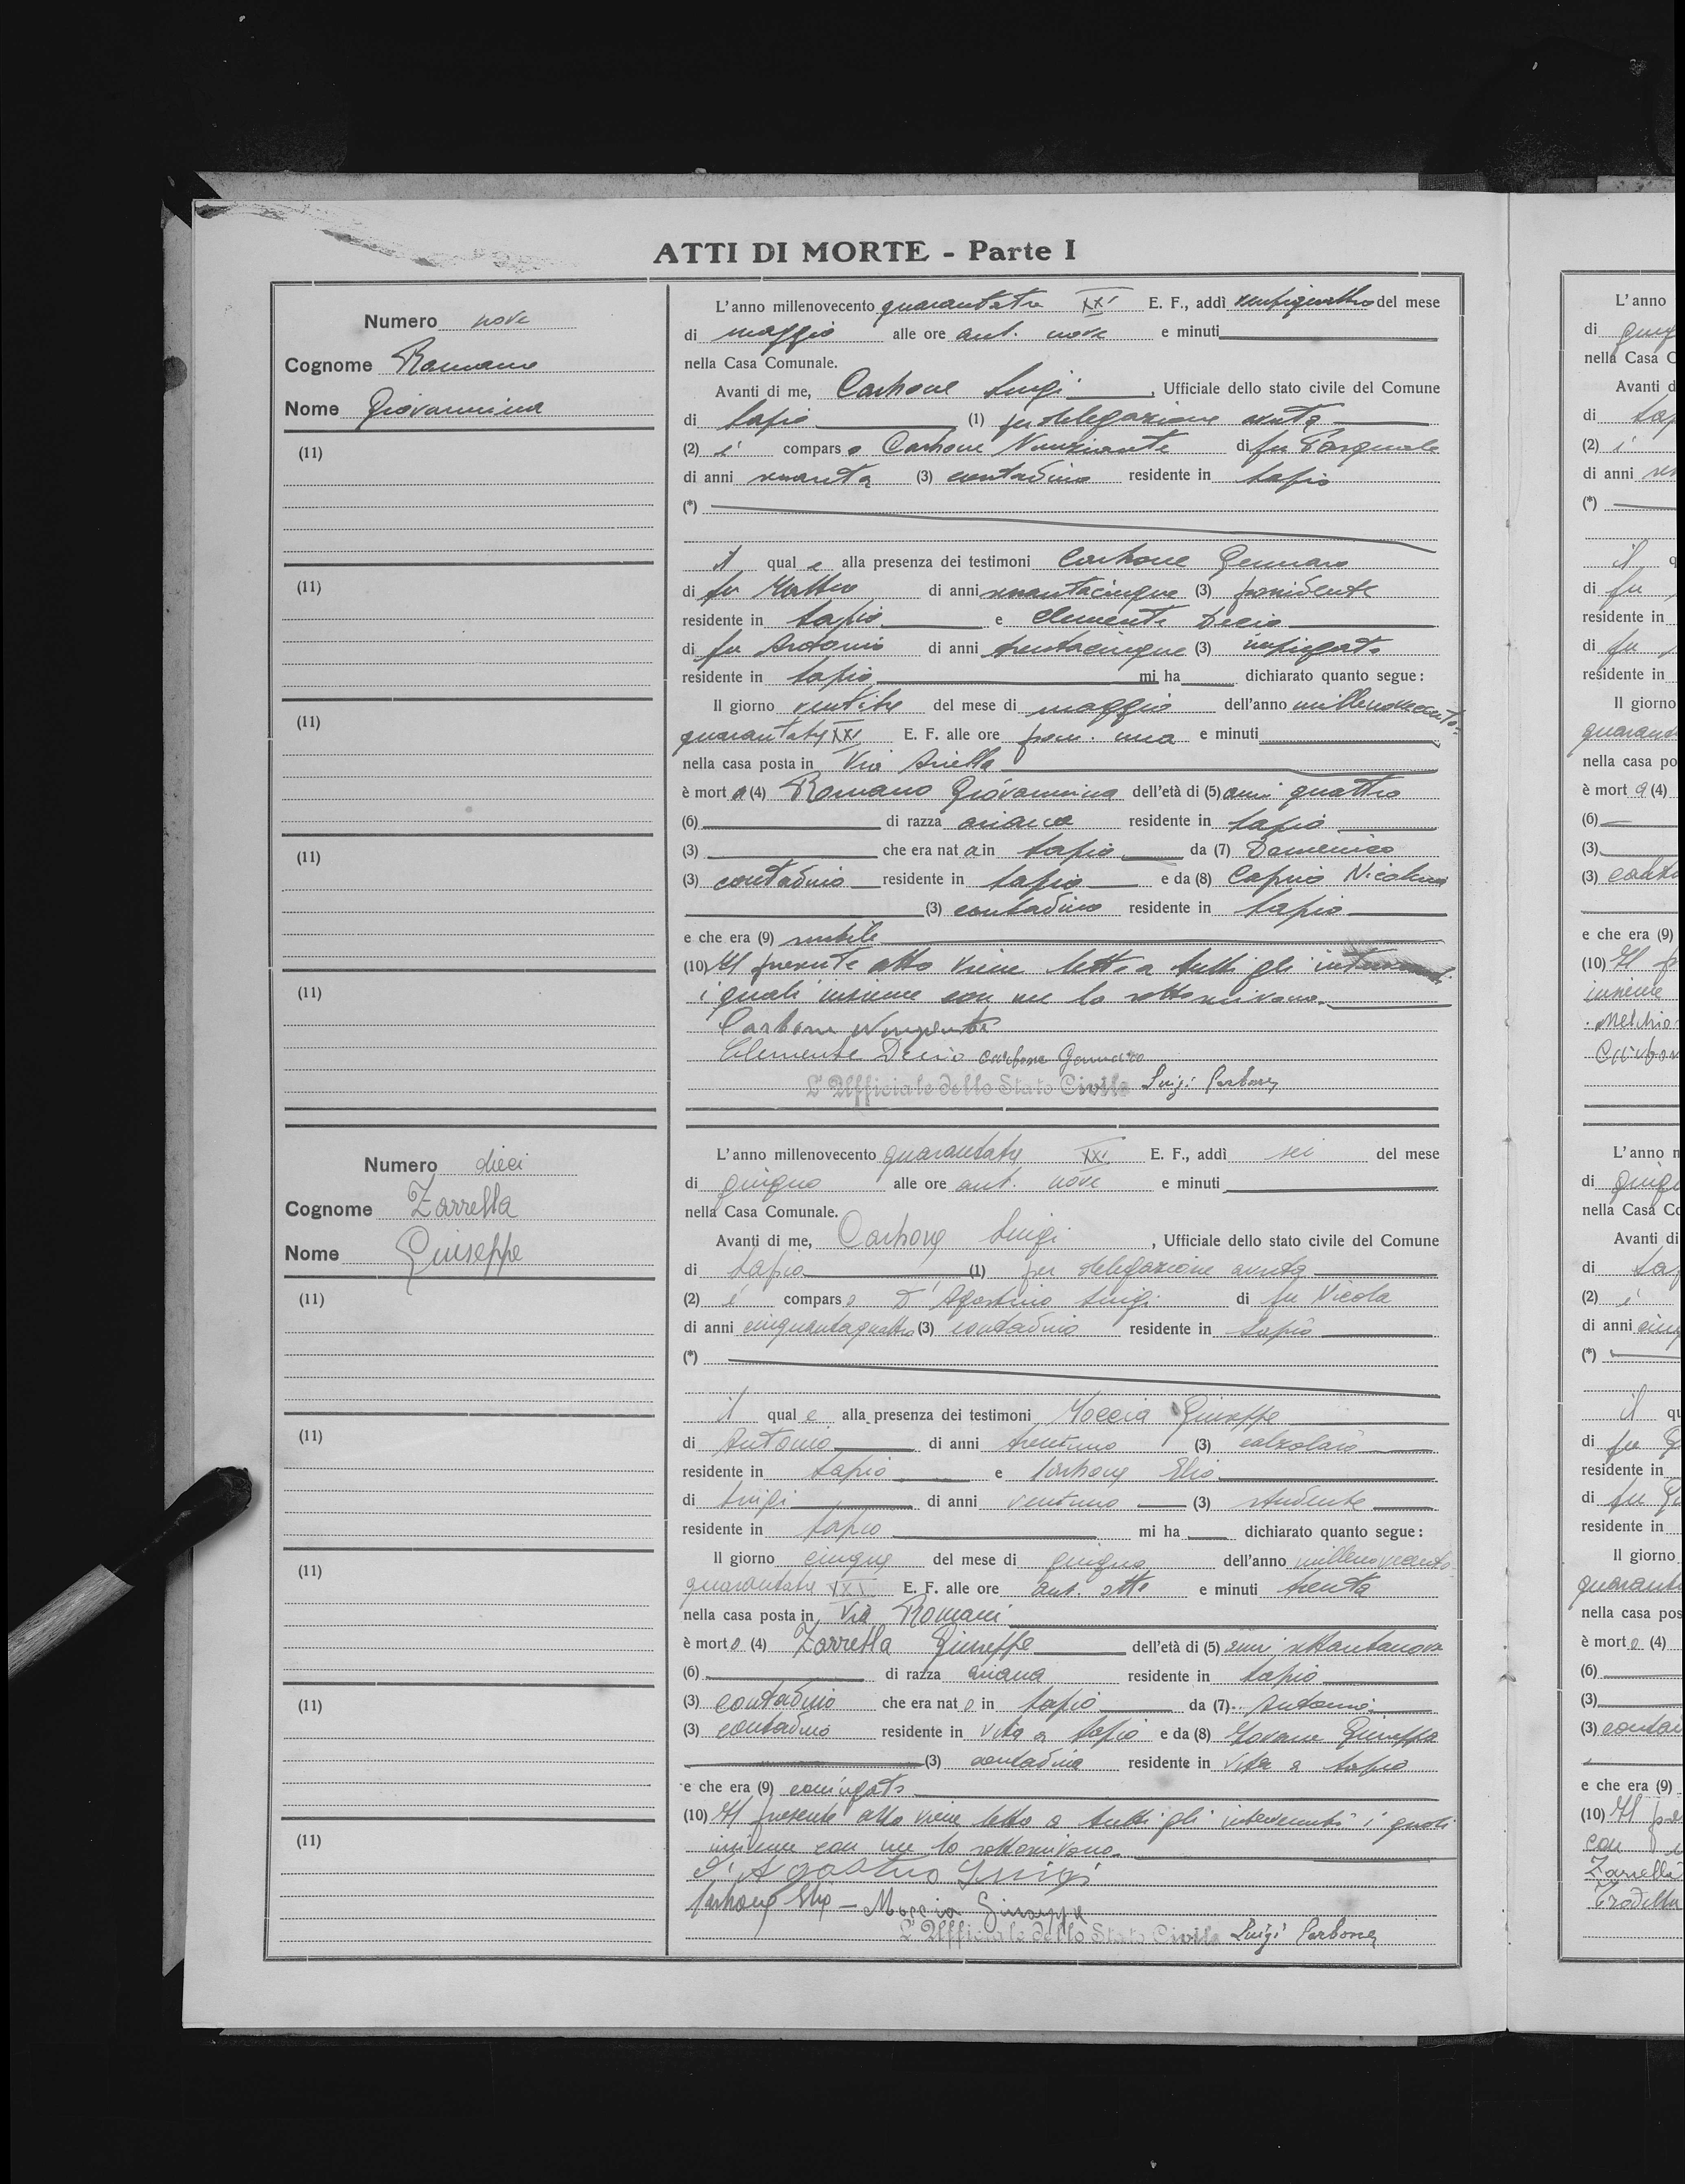 ATTI DI MORTE - Parte I
Numero nove
Cognome Romano
Nome Giovannina
(11)
(11)
(11)
(11)
(11)
L'anno millenovecento quarantatre XXI E. F., addì ventiquattro del mese
di maggio alle ore ant. nove e minuti
nella Casa Comunale.
Avanti di me, Carbone Luigi, Ufficiale dello stato civile del Comune
di Lapio (1) per delegazione avuta
(2) è comparso Carbone Nunziante di fu Pasquale
di anni (3) contadino residente in Lapio
(*)
il quale alla presenza dei testimoni Carbone Gennaro
di fu Matteo di anni (3) possidente
residente in Lapio e Clemente Decio
di fu Antonio di anni trentacinque (3) impiegato
residente in Lapio mi ha dichiarato quanto segue:
Il giorno ventitre del mese di maggio dell'anno millenovecento-
quarantatre XXI E. F. alle ore pom. una e minuti
nella casa posta in Via Ariella
è morta (4) Romano Giovannina dell'età di (5) anni quattro
(6) di razza ariana residente in Lapio
(3) che era nata in Lapio da (7) Domenico
(3) contadino residente in Lapio e da (8) Caprio Nicolina
(3) contadina residente in Lapio
e che era (9) nubile
(10) Il presente atto viene letto a tutti gli intervenuti
i quali insieme con me lo sottoscrivono.
Carbone Nunziante
Clemente Decio Carbone Gennaro
L'Ufficiale dello Stato Civile Luigi Carbone
Numero dieci
Cognome Zarrella
Nome Giuseppe
(11)
(11)
(11)
(11)
(11)
L'anno millenovecento quarantatre XXI E. F., addì sei del mese
di giugno alle ore ant. nove e minuti
nella Casa Comunale.
Avanti di me, Carbone Luigi, Ufficiale dello stato civile del Comune
di Lapio (1) per delegazione avuta
(2) è comparso D'Agostino Luigi di fu Nicola
di anni cinquantaquattro (3) contadino residente in Lapio
(*)
il quale alla presenza dei testimoni Moccia Giuseppe
di Antonio di anni trentuno (3) calzolaio
residente in Lapio e Carbone Elio
di Luigi di anni ventuno (3) studente
residente in Lapio mi ha dichiarato quanto segue:
Il giorno cinque del mese di giugno dell'anno millenovecento-
quarantatre XXI E. F. alle ore ant. otto e minuti trenta
nella casa posta in Via Romani
è morto (4) Zarrella Giuseppe dell'età di (5) anni settantanove
(6) di razza ariana residente in Lapio
(3) contadino che era nato in Lapio da (7) Antonio
(3) contadino residente in vita a Lapio e da (8) Giuseppa
(3) contadina residente in vita a Lapio
e che era (9) coniugato
(10) Il presente atto viene letto a tutti gli intervenuti i quali
insieme con me lo sottoscrivono.
D'Agostino Luigi
Carbone Elio - Moccia Giuseppe
L'Ufficiale dello Stato Civile Luigi Carbone
L'anno
di giug
nella Casa C
Avanti d
di Lap
(2) è
di anni
(*)
il q
di fu
residente in
di fu
residente in
Il giorno
quarant
nella casa po
è morta (4)
(6)
(3)
(3) conta
e che era (9)
(10) Il p
insieme
L'anno n
di giug
nella Casa Co
Avanti di
di Lap
(2) è
di anni cinq
(*)
il qu
di fu G
residente in
di fu
residente in
Il giorno
quaranta
nella casa pos
è morto (4)
(6)
(3)
(3) contad
e che era (9)
(10) Il pre
con
Zarrella